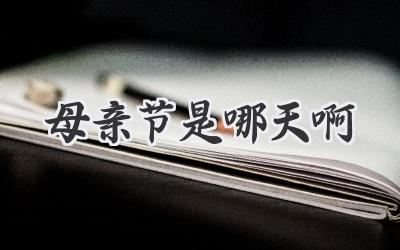 母亲节是哪天啊